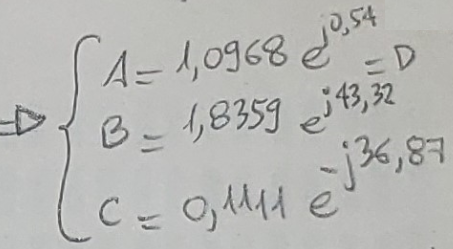 ⇒ { A = 1,0968 e^j0,54 = D
B = 1,8359 e^j43,32
C = 0,1111 e^-j36,87